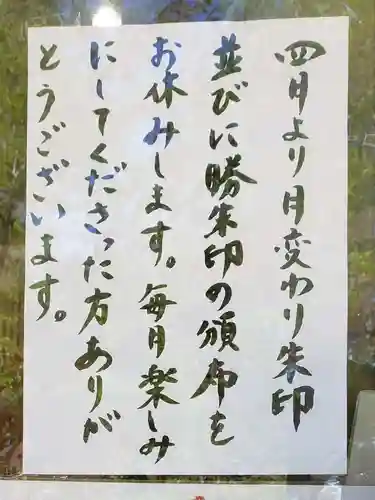 四月より月変わり朱印
並びに勝朱印の頒布を
お休みします。毎月楽しみ
にしてくださった方ありが
とうございます。